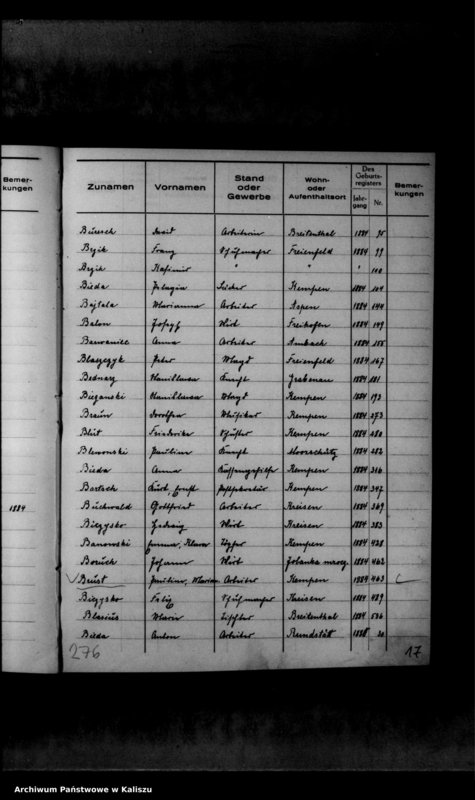 Bemer-
kungen
1884
Zunamen Vornamen Stand oder Gewerbe Wohn- oder Aufenthaltsort Des Geburts-registers Jahr-gang Nr. Bemer-kungen
Arbeiterin Breitenthal 1884 95
Bzik Franz Schuhmacher Freienfeld 1884 99
Bzik Kasimir " " " 100
Bieda Pelagia Kempen 1884 104
Bajtala Marianna Arbeiter Aspen 1884 144
Balon Josef Wirt Freihofen 1884 149
Anna Arbeiter Ambach 1884 155
Blaszczyk Peter Magd Freienfeld 1884 167
Bednarz Stanislaus Knecht Grabenau 1884 181
Biezanski Stanislaus Magd Kempen 1884 193
Braun Dorothea Musiker Kempen 1884 273
Friederike Schuster Kempen 1884 280
Blewonski Pauline Knecht 1884 282
Bieda Anna Kempen 1884 316
Bartsch Kurt, Ernst Kempen 1884 347
Buchwald Gottfried Arbeiter Kreisen 1884 369
Biczysko Hedwig Wirt Kreisen 1884 383
Banowski Emma, Klara Töpfer Kempen 1884 428
Boruch Johann Wirt 1884 462
Brust Pauline, Marianna Arbeiter Kempen 1884 463
Biczysko Felix Schuhmacher Kreisen 1884 489
Blasius Maria Tischler Breitenthal 1884 536
Bieda Anton Arbeiter Rundstätt
276
17
Archiwum Państwowe w Kaliszu